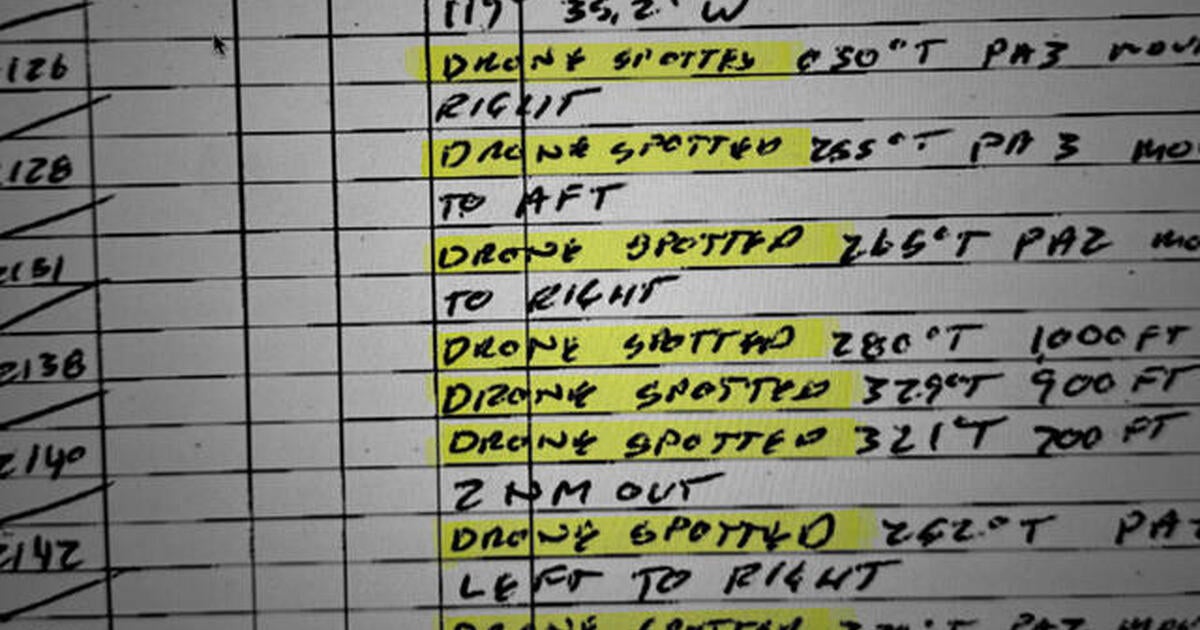 119° 35.2' W
2126 DRONE SPOTTED 050°T PA3 MOV
RIGHT
2128 DRONE SPOTTED 255°T PA 3 MO
TO AFT
2131 DRONE SPOTTED 265°T PA2 MO
TO RIGHT
2138 DRONE SPOTTED 280°T 1000 FT
DRONE SPOTTED 329°T 900 FT
2140 DRONE SPOTTED 321°T 700 FT
2 NM OUT
2142 DRONE SPOTTED 262°T PA2
LEFT TO RIGHT
DRONE SPOTTED PA2